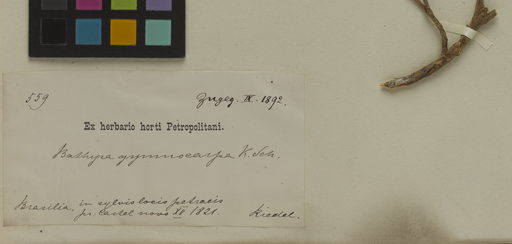 559 Zugeg. IX. 1892.
Ex herbario horti Petropolitani.
Bathysa gymnocarpa K. Sch.
Brasilia, in sylvis locis petraeis
pr. Castel novo XI 1821. Riedel.